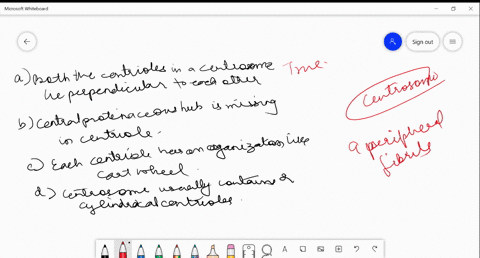 Microsoft Whiteboard
Sign out
a) Both the centrioles in a centrosome True.
lie perpendicular to each other
b) Central proteinaceous hub is missing
in centriole.
c) Each centriole has an organization like
cart wheel.
d) Centrosome usually contains 2
cylindrical centrioles.
Centrosome
9 peripheral
fibrils